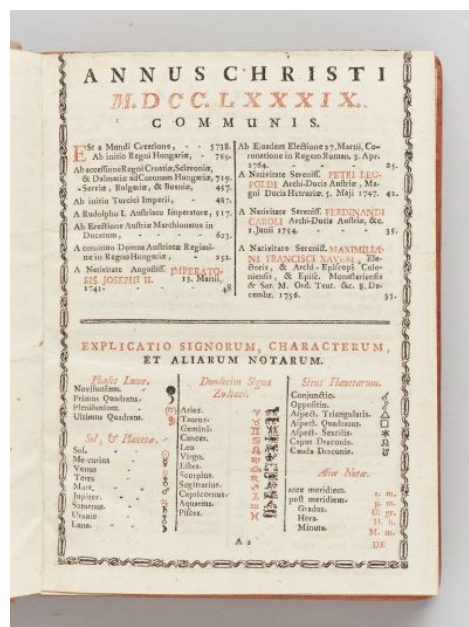 ANNUS CHRISTI
M.DCC.LXXXIX.
COMMUNIS.
ESt a Mundi Creatione, - - 5738.
Ab initio Regni Hungariæ, - 789.
Ab accessione Regni Croatiæ, Sclavoniæ,
& Dalmatiæ ad Coronam Hungariæ, 719.
-Serviæ, Bulgariæ, & Bosniæ, 457.
Ab initio Turcici Imperii, - 487.
A Rudolpho I. Austriaco Imperatore, 517.
Ab Erectione Austriæ Marchionatus in
Ducatum, - - - 623.
A continuo Domus Austriacæ Regimi-
ne in Regno Hungariæ, - 252.
A Nativitate Augustiss. IMPERATO-
RIS JOSEPHI II. 13. Martii,
1741. - - - 48
Ab Ejusdem Electione 27. Martii, Co-
ronatione in Regem Roman. 3. Apr.
1764. - - - 25.
A Nativitate Sereniss. PETRI LEO-
POLDI Archi-Ducis Austriæ, Ma-
gni Ducis Hetruriæ. 5. Maji 1747. 42.
A Nativitate Sereniss. FERDINANDI
CAROLI Archi-Ducis Austriæ, &c.
1. Junii 1754. - - - 35.
A Nativitate Sereniss. MAXIMILIA-
NI FRANCISCI XAVERI, Ele-
ctoris, & Archi-Episcopi Colo-
niensis, & Episc. Monasteriensis
& Ser. M. Ord. Teut. &c. 8. De-
cembr. 1756. 33.
EXPLICATIO SIGNORUM, CHARACTERUM,
ET ALIARUM NOTARUM.
Phases Lunæ.
Novilunium.
Primus Quadrans.
Plenilunium.
Ultimus Quadrans.
Sol, & Planetæ.
Sol. ☉
Mercurius ☿
Venus ♀
Terra
Mars. ♂
Jupiter. ♃
Saturnus. ♄
Uranie
Luna. ☽
Duodecim Signa
Zodiaci.
Aries. ♈
Taurus. ♉
Gemini. ♊
Cancer. ♋
Leo ♌
Virgo. ♍
Libra. ♎
Scorpius. ♏
Sagittarius. ♐
Capricornus. ♑
Aquarius. ♒
Pisces. ♓
Situs Planetarum.
Conjunctio. ☌
Oppositio. ☍
Aspect. Triangularis. △
Aspect. Quadratus. □
Aspect. Sextilis. ✱
Caput Draconis. ☊
Cauda Draconis. ☋
Aliæ Notæ.
ante meridiem. a. m.
post meridiem. p. m.
Gradus. G. gr.
Hora. H. h.
Minuta. M. m.
A 2
DE